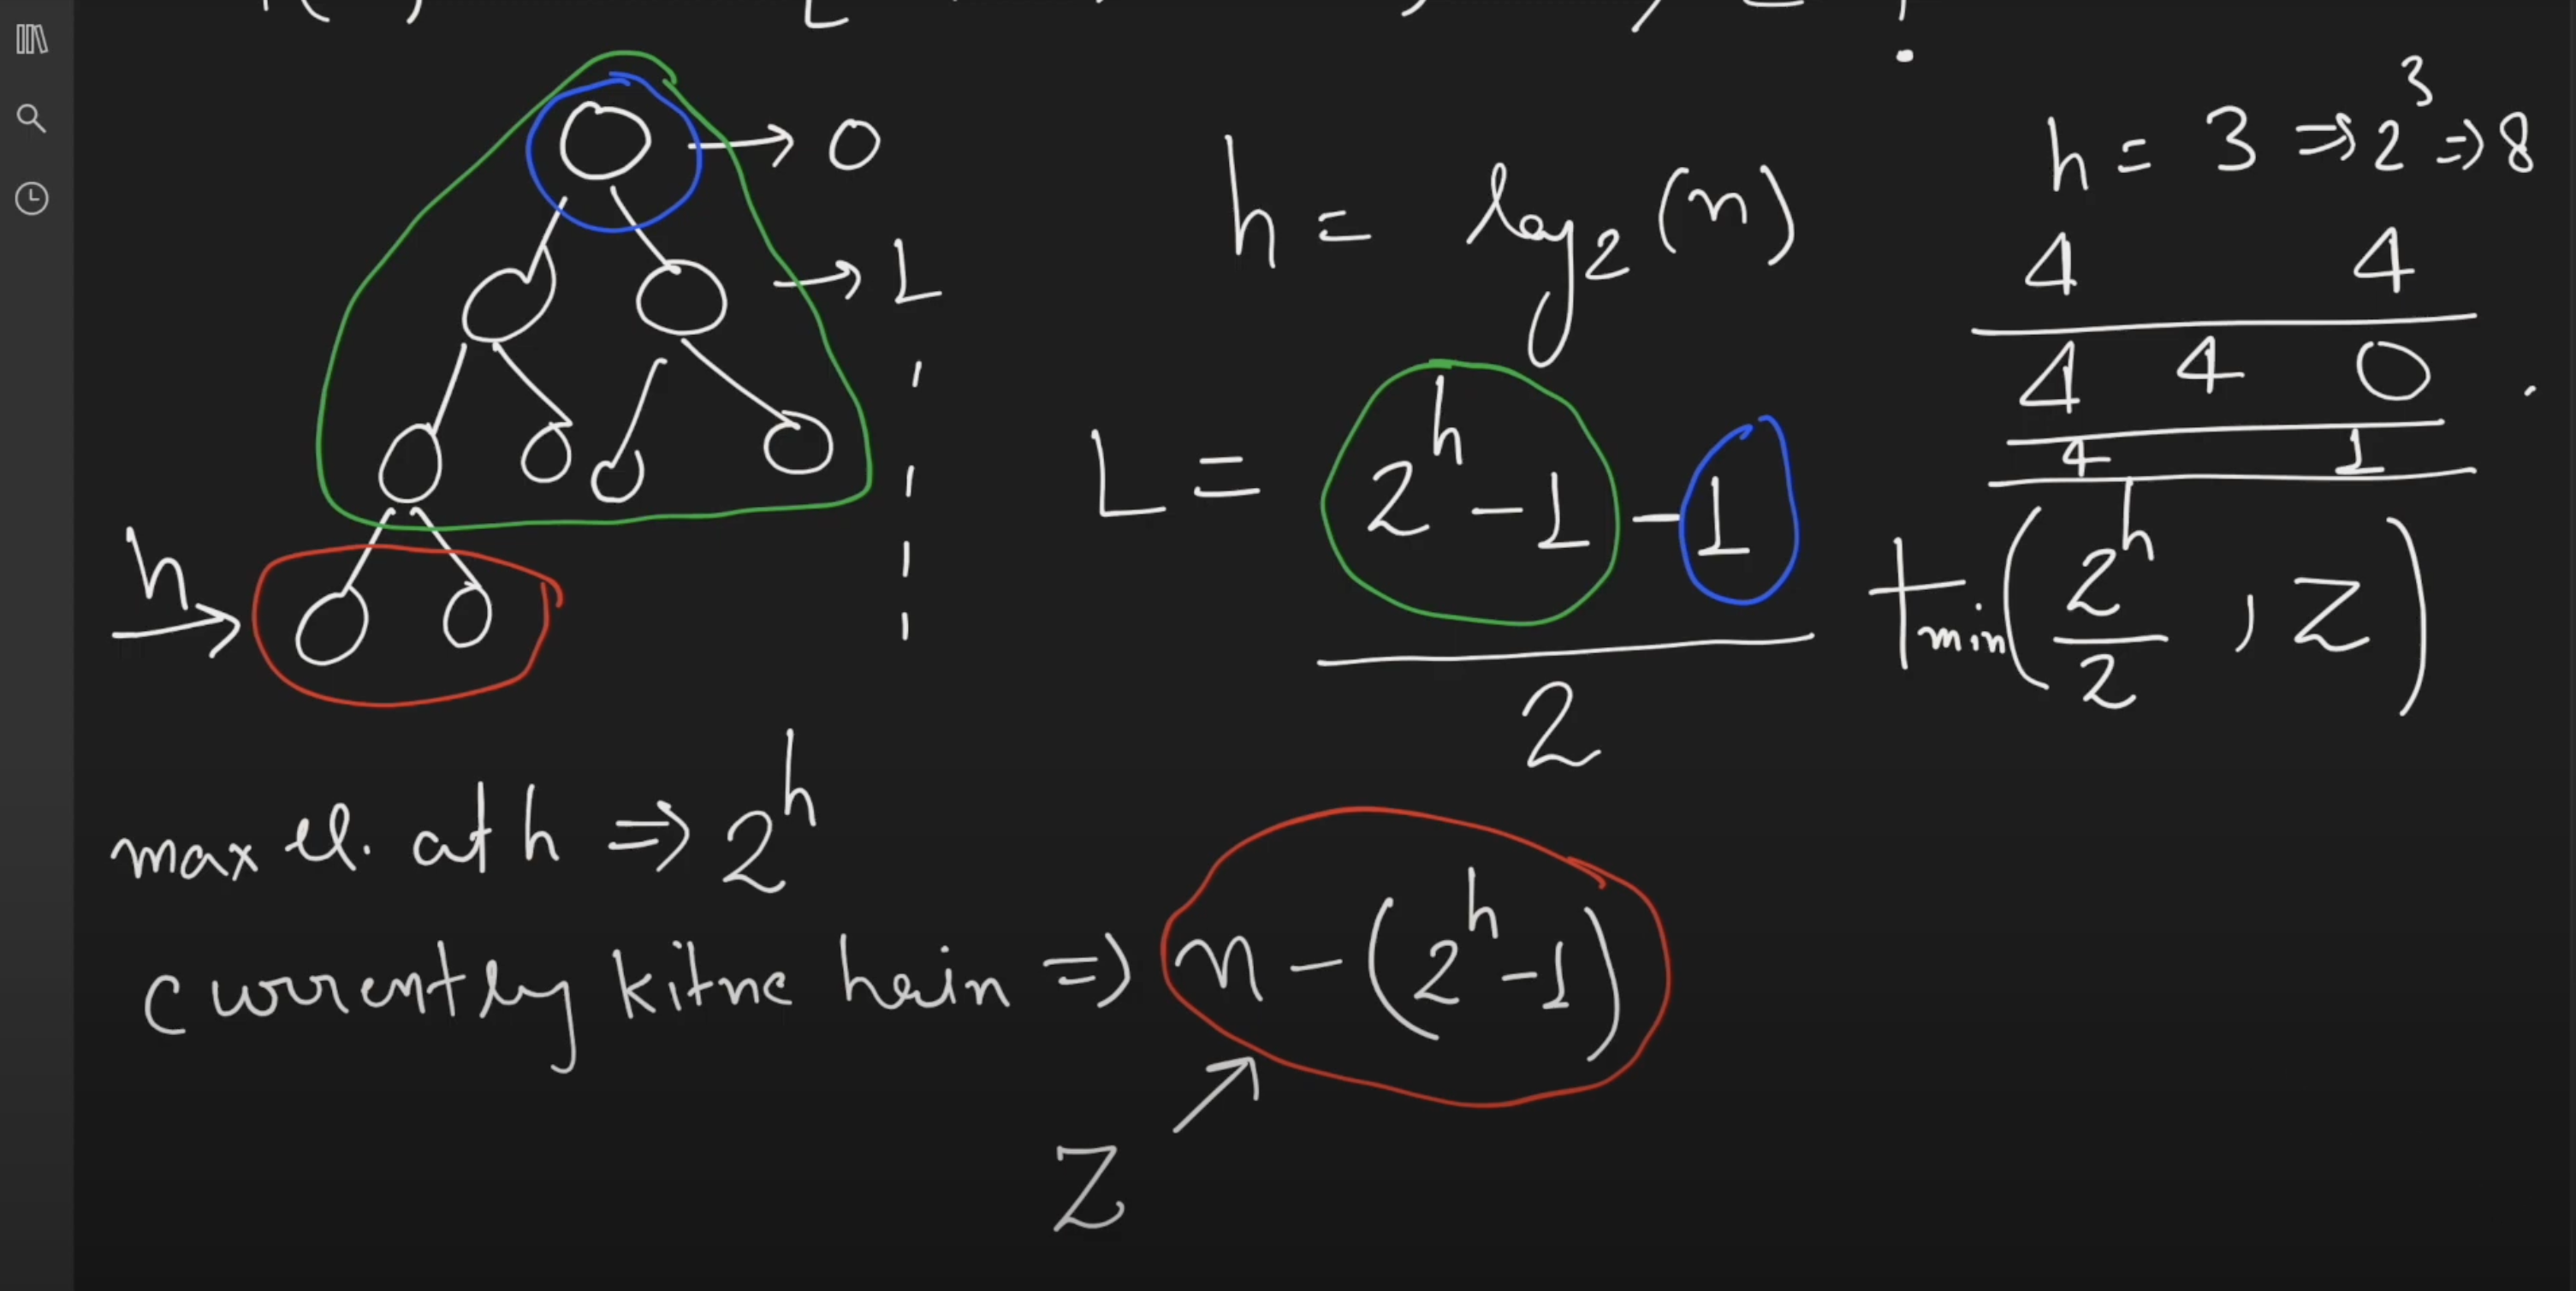 → 0
→ L
h →
h = log₂(n)
h = 3 ⇒ 2³ ⇒ 8
4 4
4 4 0
4 1
L = (2^h - 1 - 1) / 2 + min(2^h / 2, Z)
max el. at h ⇒ 2^h
currently kitne hain ⇒ n - (2^h - 1)
Z